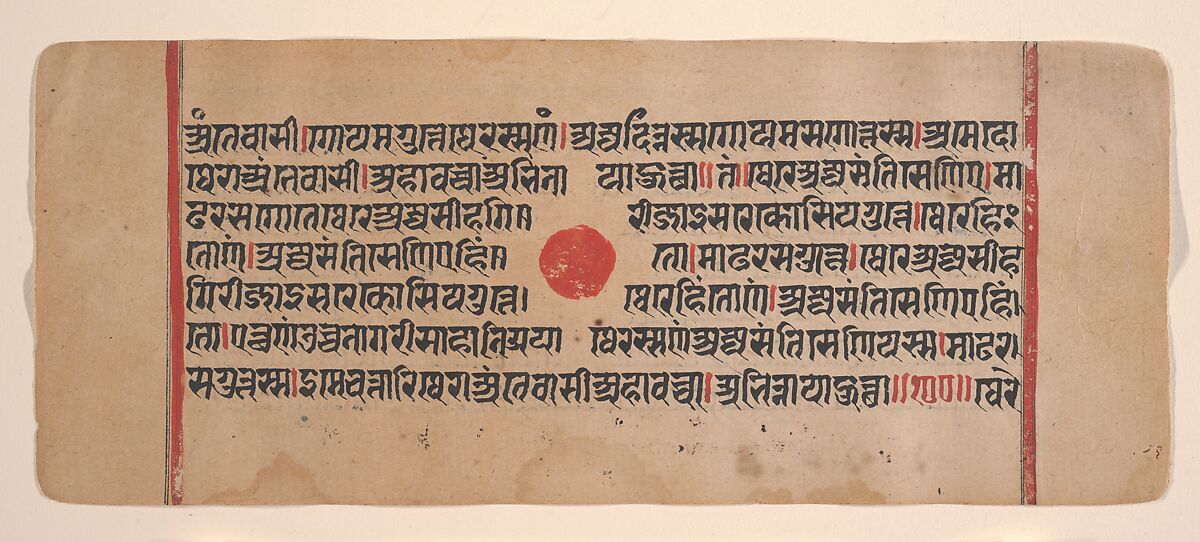 अंतेवासी।गोयमगुत्तेथेरस्सणं।अज्जदिन्नस्सगोयमसगोत्तस्स।इमेदो
थेराअंतेवासी।अहावच्चाअभिन्नायाहोत्था॥तं॥थेरेअज्जसंतिसेणिए।मा
ढरसगोत्तेथेरेअज्जसीहगिरीजाइसरेकोसियगुत्ते।थेरेहिं
तोणं।अज्जसंतिसेणिएहिंतो।माढरसगुत्ते।थेरेअज्जसीह
गिरीजाइसरेकोसियगुत्ते।थेरेहिंतोणं।अज्जसंतिसेणिएहिं
तो।एत्थणंउच्चनागरीसाहानिग्गयाथेरस्सणंअज्जसंतिसेणियस्स।माढर
सगुत्तस्स।इमेचत्तारिथेराअंतेवासीअहावच्चा।अभिन्नायाहोत्था॥थेरे